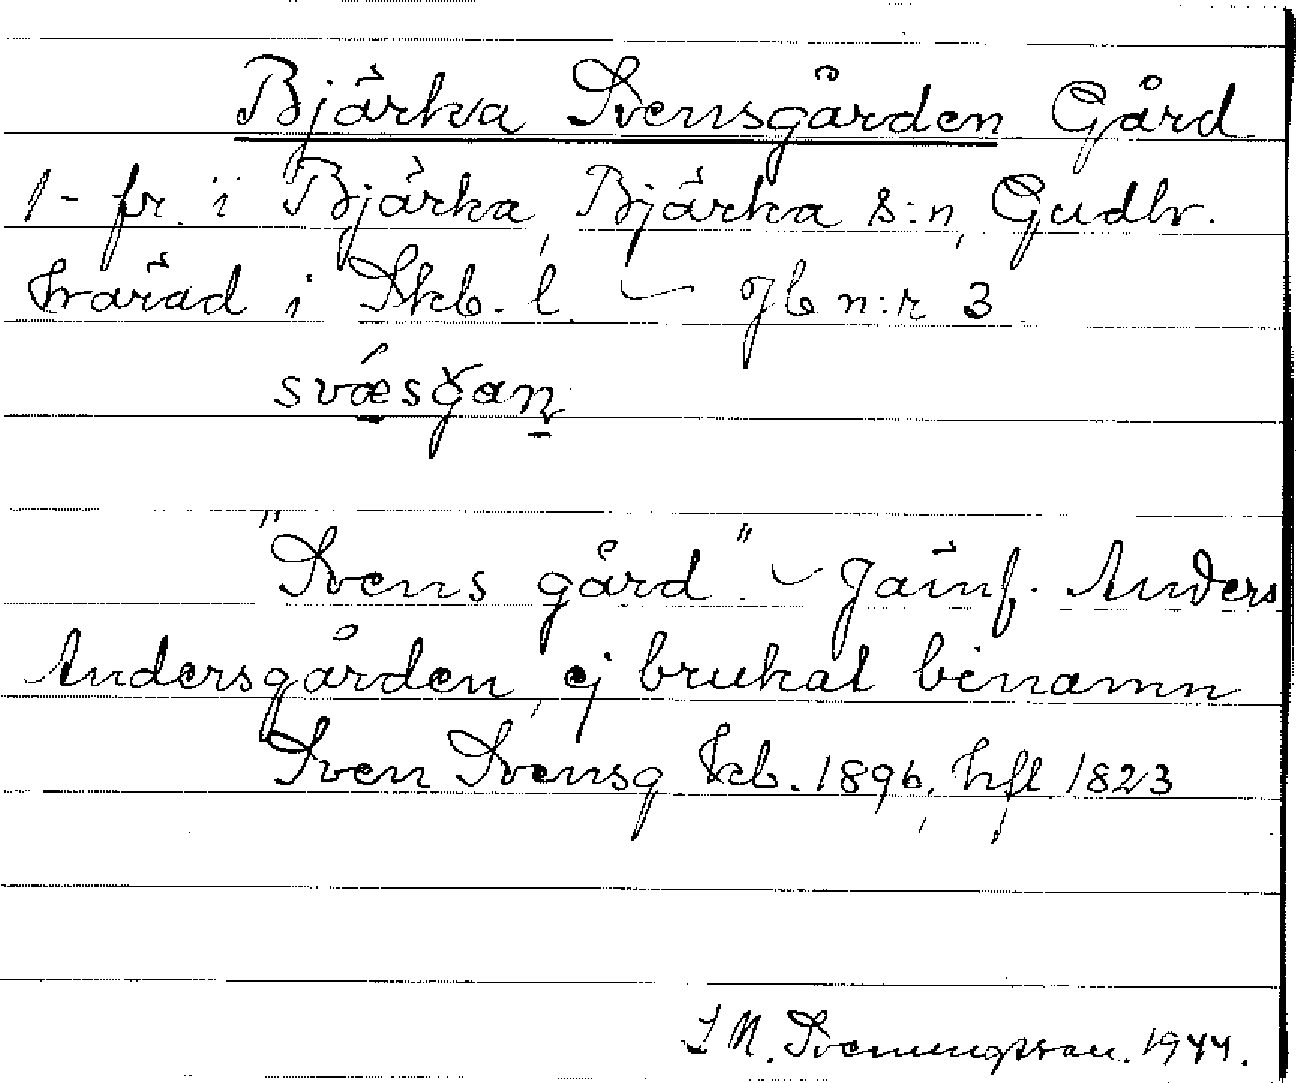 Bjärka Svensgården Gård
1 - fr. i Bjärka, Bjärka s:n, Gudh.
härad i Skb. l. — Jb n:r 3
svǽsɣan
"Svens gård". — Jämf. Anders
Andersgården, ej brukat binamn
Sven Svensg kb. 1896, hfl 1823
1944.